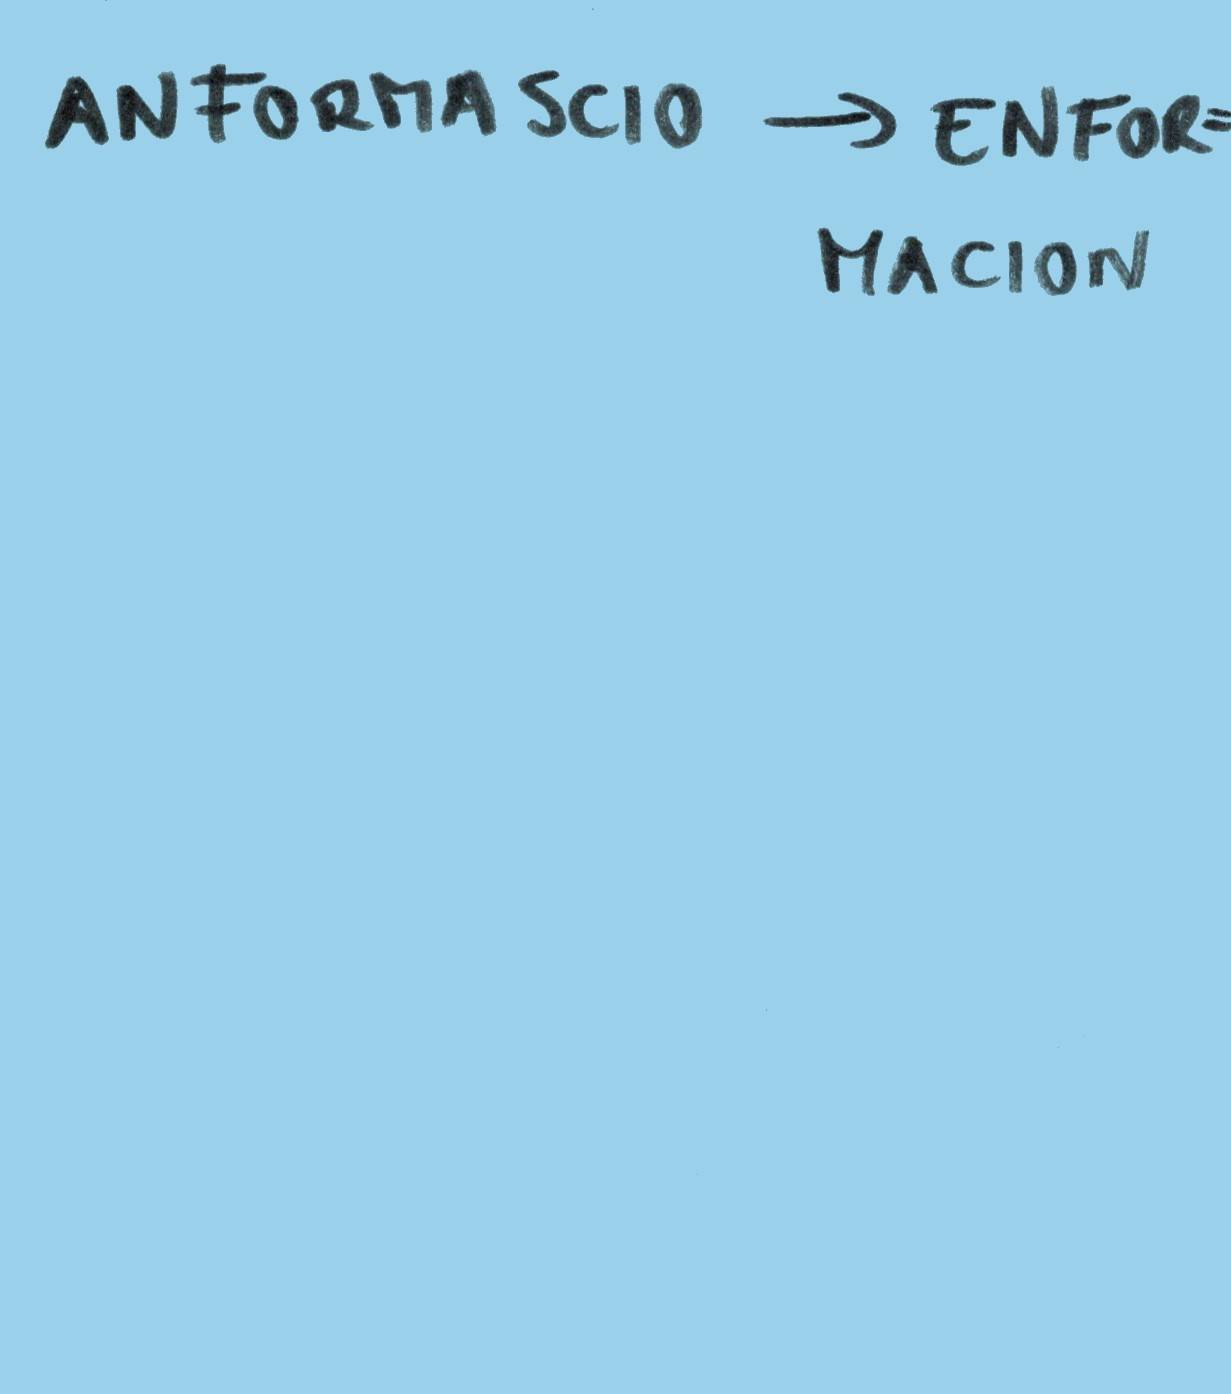 ANFORMASCIO → ENFOR=
MACION